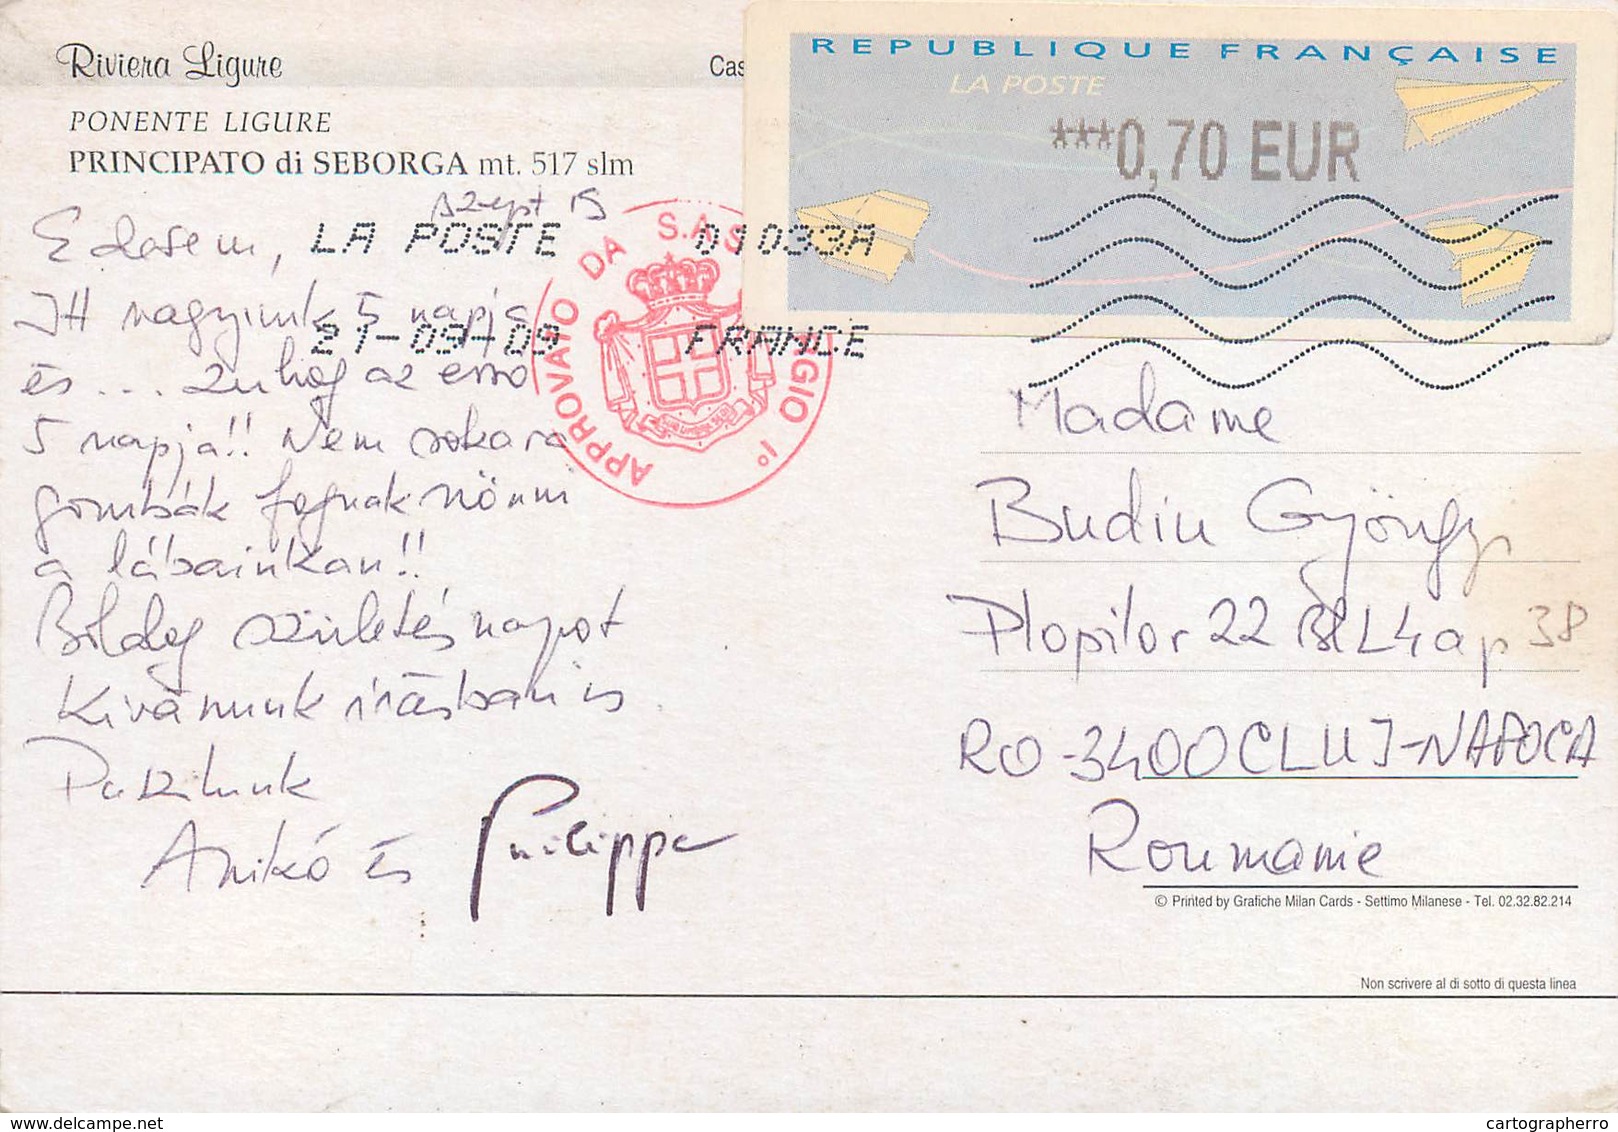 Riviera Ligure
Cas
PONENTE LIGURE
PRINCIPATO di SEBORGA mt. 517 slm
REPUBLIQUE FRANÇAISE
LA POSTE
***0,70 EUR
LA POSTE 01033A
21-09-09 FRANCE
APPROVATO DA S.A.S GIORGIO I°
szept 15
Edesem,
Itt vagyunk 5 napja
és ... zuhog az eső
5 napja!! Nem sokara
gombák fognak nönni
a lábainkan!!
Boldog születés napot
Kivánunk irásban is
Puszilunk
Anikó és Philippe
Madame
Budiu Gyöngy
Plopilor 22 BL L4 ap 38
RO-3400 CLUJ-NAPOCA
Roumanie
© Printed by Grafiche Milan Cards - Settimo Milanese - Tel. 02.32.82.214
Non scrivere al di sotto di questa linea
delcampe.net
cartographerro